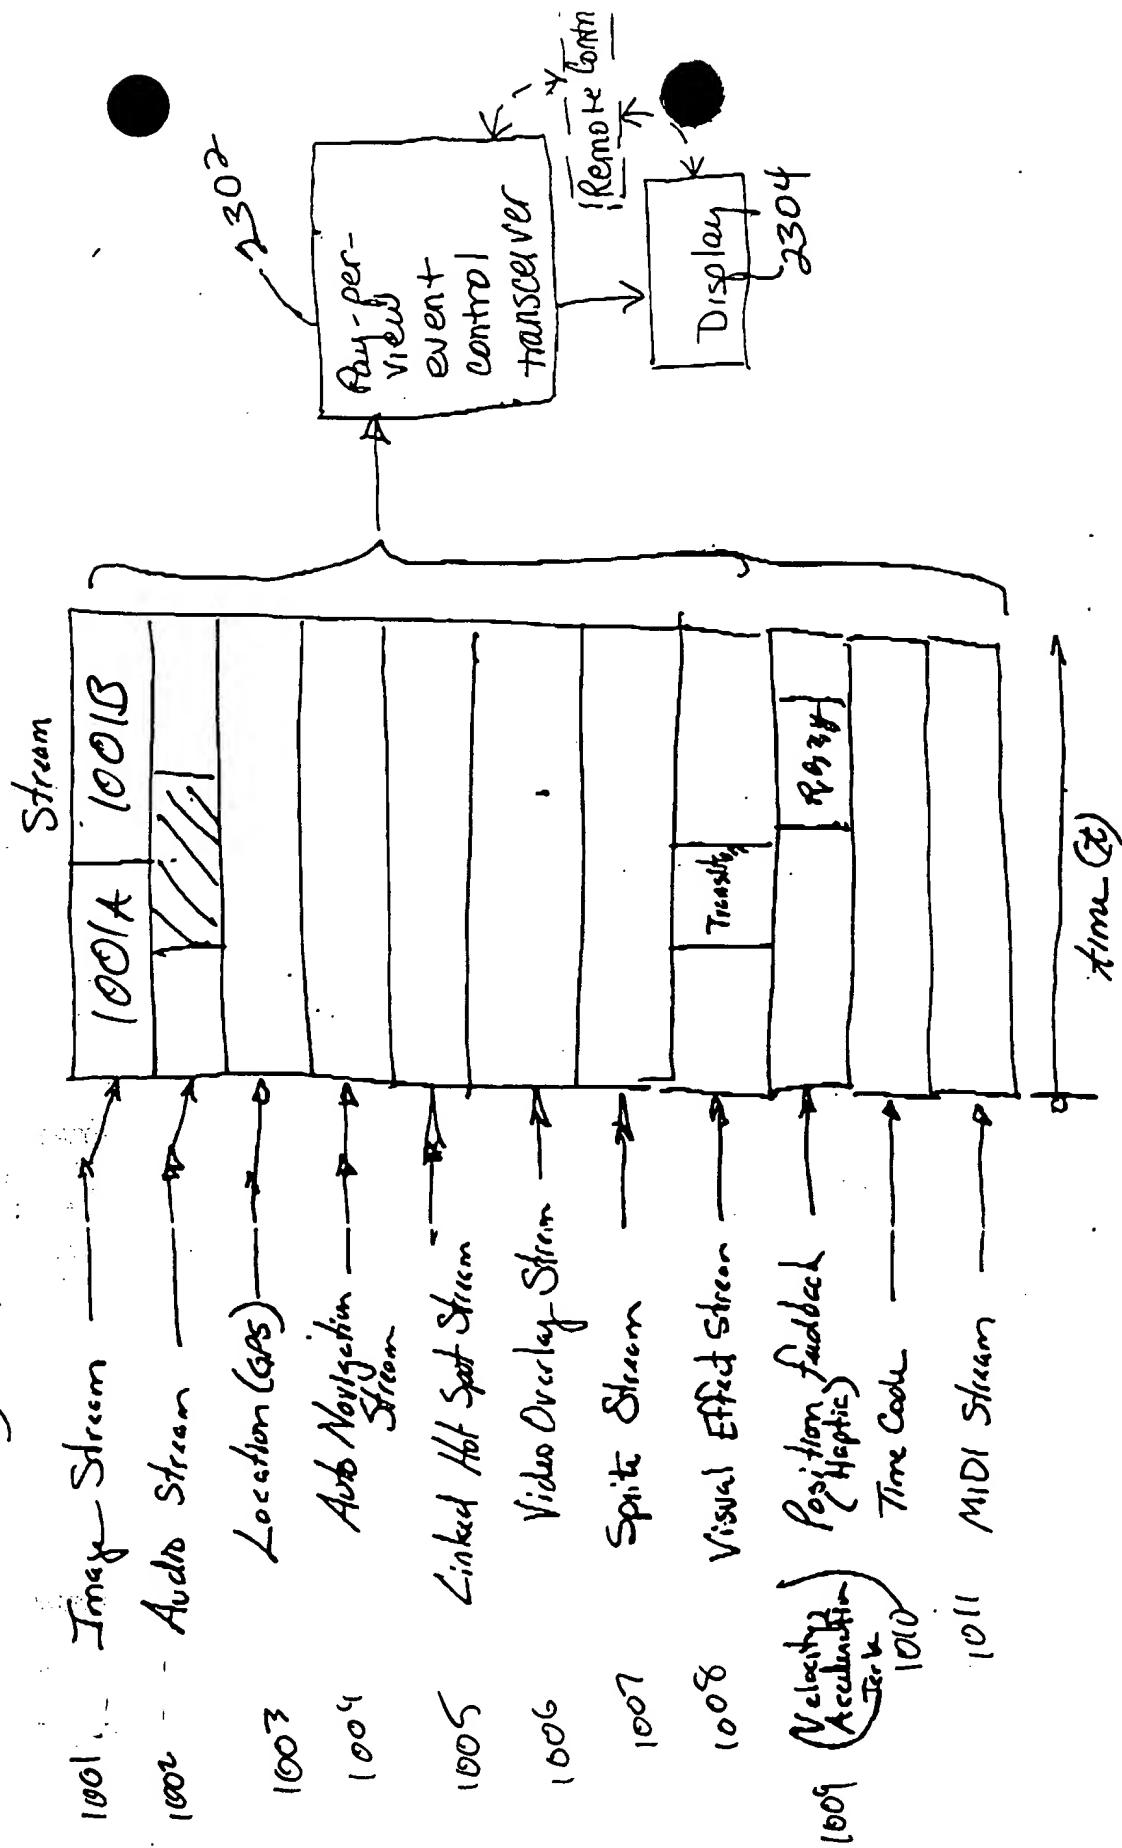 Stream
1001 Image Stream
1001A 1001B
1002 Audio Stream
1003 Location (GPS)
1004 Auto Navigation
Stream
1005 Linked Hot Spot Stream
1006 Video Overlay Stream
1007 Sprite Stream
1008 Visual Effect Stream
1009 (Velocity
Acceleration
Jerk)
Position feedback
(Haptic)
1010 Time Code
1011 MIDI Stream
time (t)
2302
Pay-per-
view
event
control
transceiver
Remote Contr
Display
2304